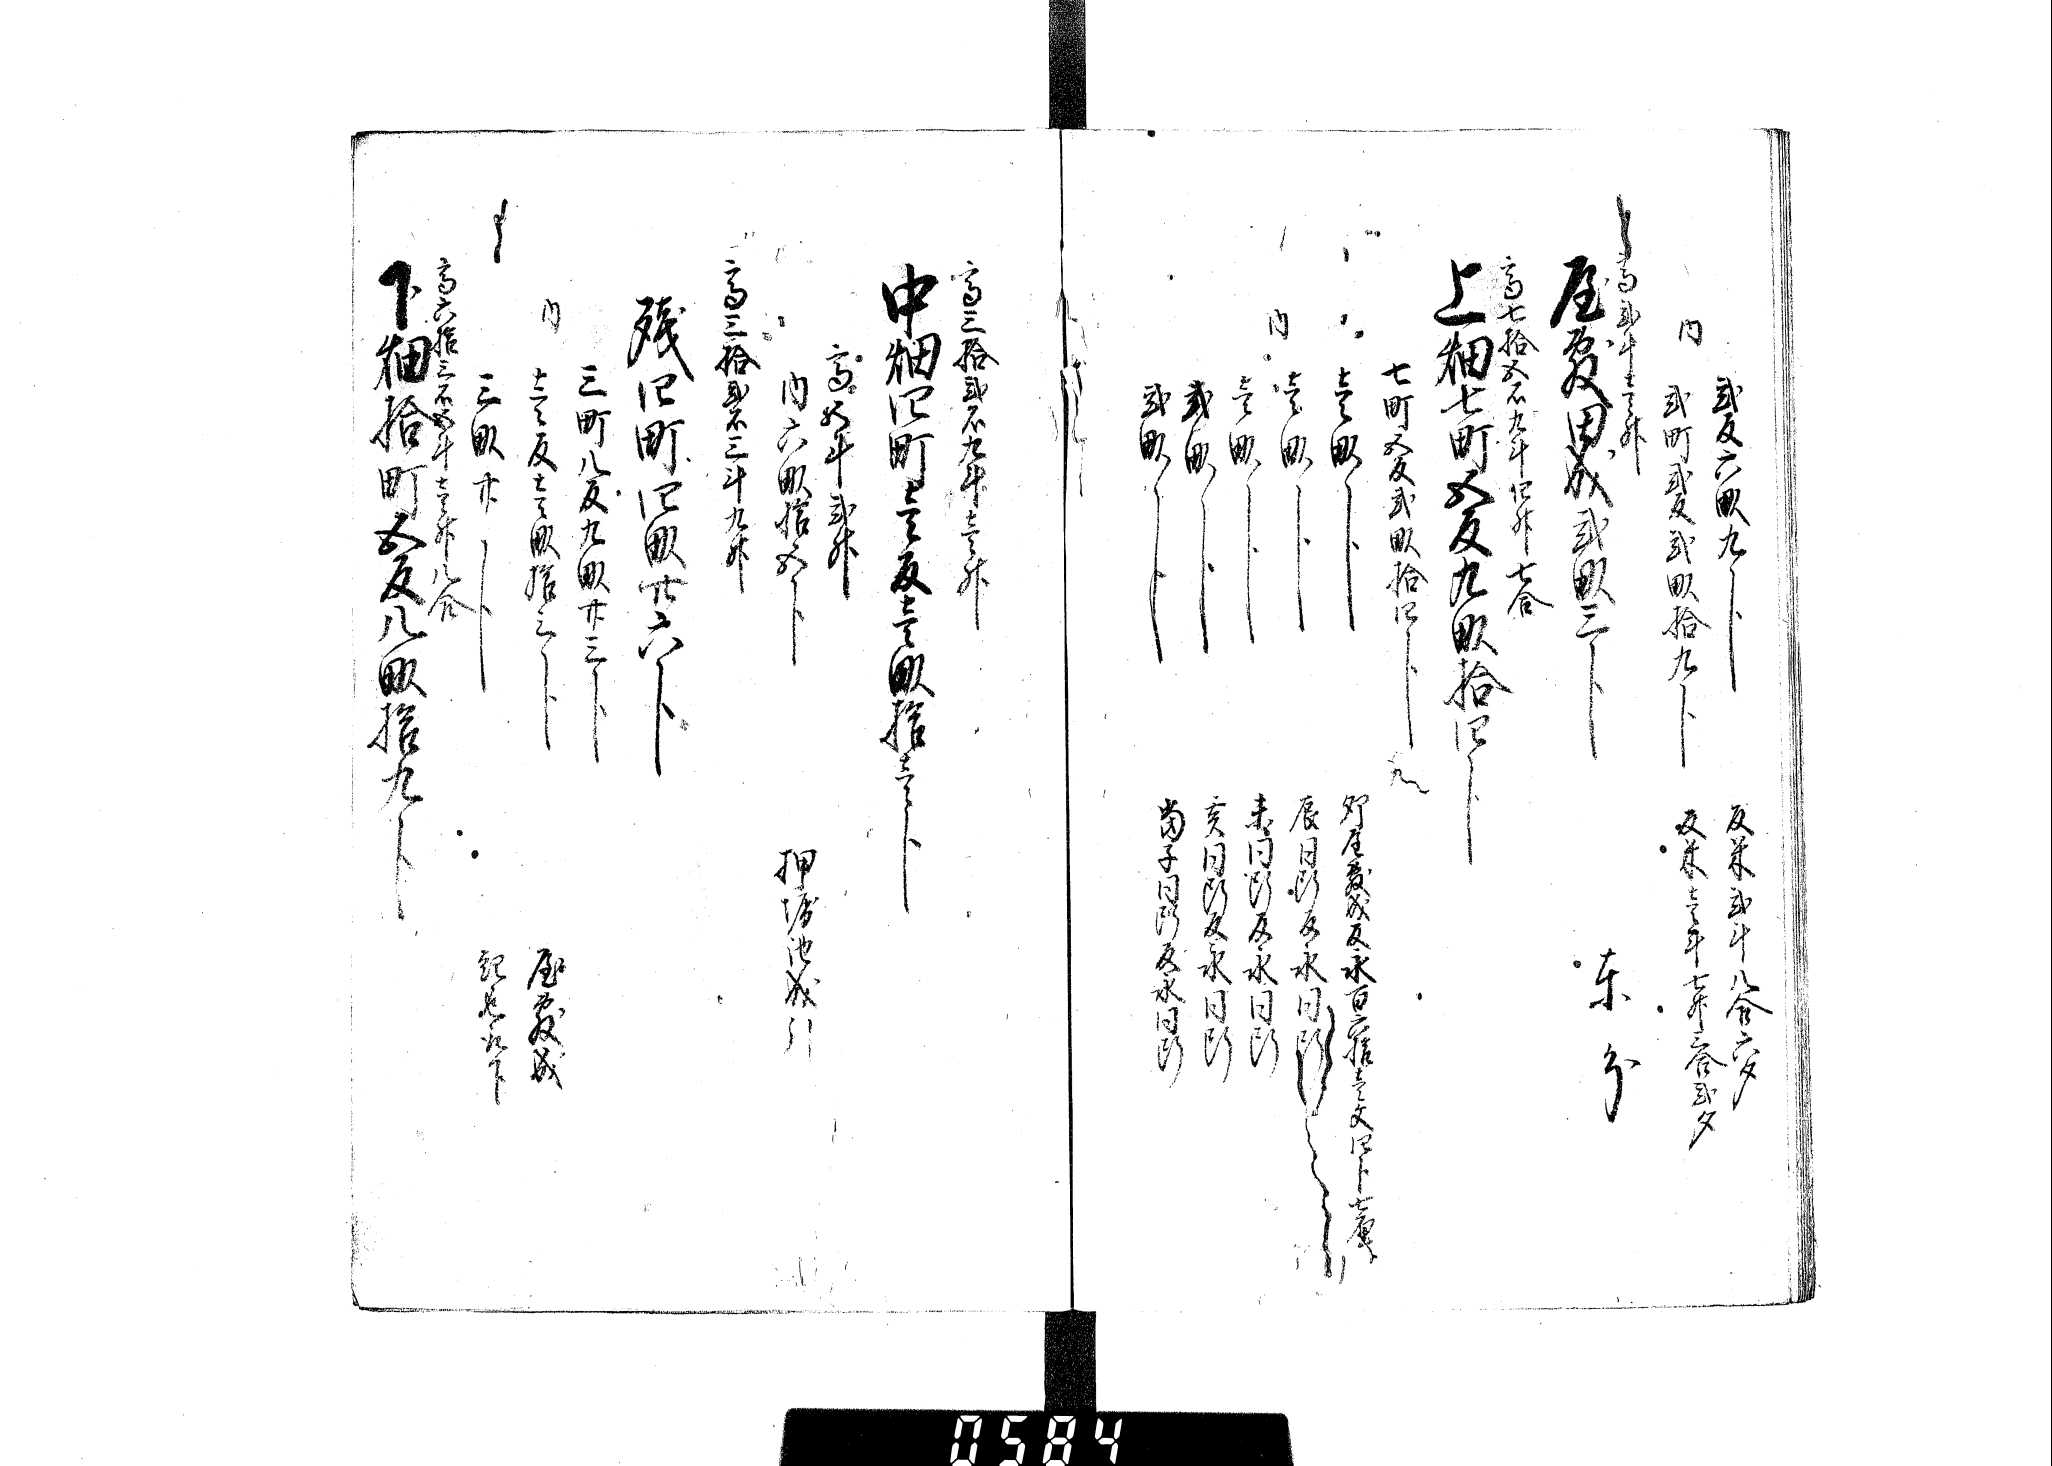 弐反六畝九卜
反米弐斗八合六夕
内
弐町弐反弐畝拾九卜
反米壱斗七升三合弐夕
高弐斗壱升
屋敷田成弐畝三卜
東分
高七拾五石九斗四升七合
上畑七町五反九畝拾四卜
七町五反弐畝拾四卜
壱畝卜
卯屋敷成反永百六拾壱文四卜七厘
内
壱畝卜
辰同断反永同断
壱畝卜
未同断反永同断
弐畝卜
亥同断反永同断
弐畝卜
当子同断反永同断
高三拾弐石九斗壱升
中畑四町壱反壱畝拾壱卜
高五斗弐升
内六畝拾五卜
押堀池成引
高三拾弐石三斗九升
残四町四畝廿六卜
三町八反九畝廿三卜
内
壱反壱畝拾三卜
屋敷成
三畝廿卜
高六拾三石五斗壱升八合
下畑拾町五反八畝拾九卜
0584